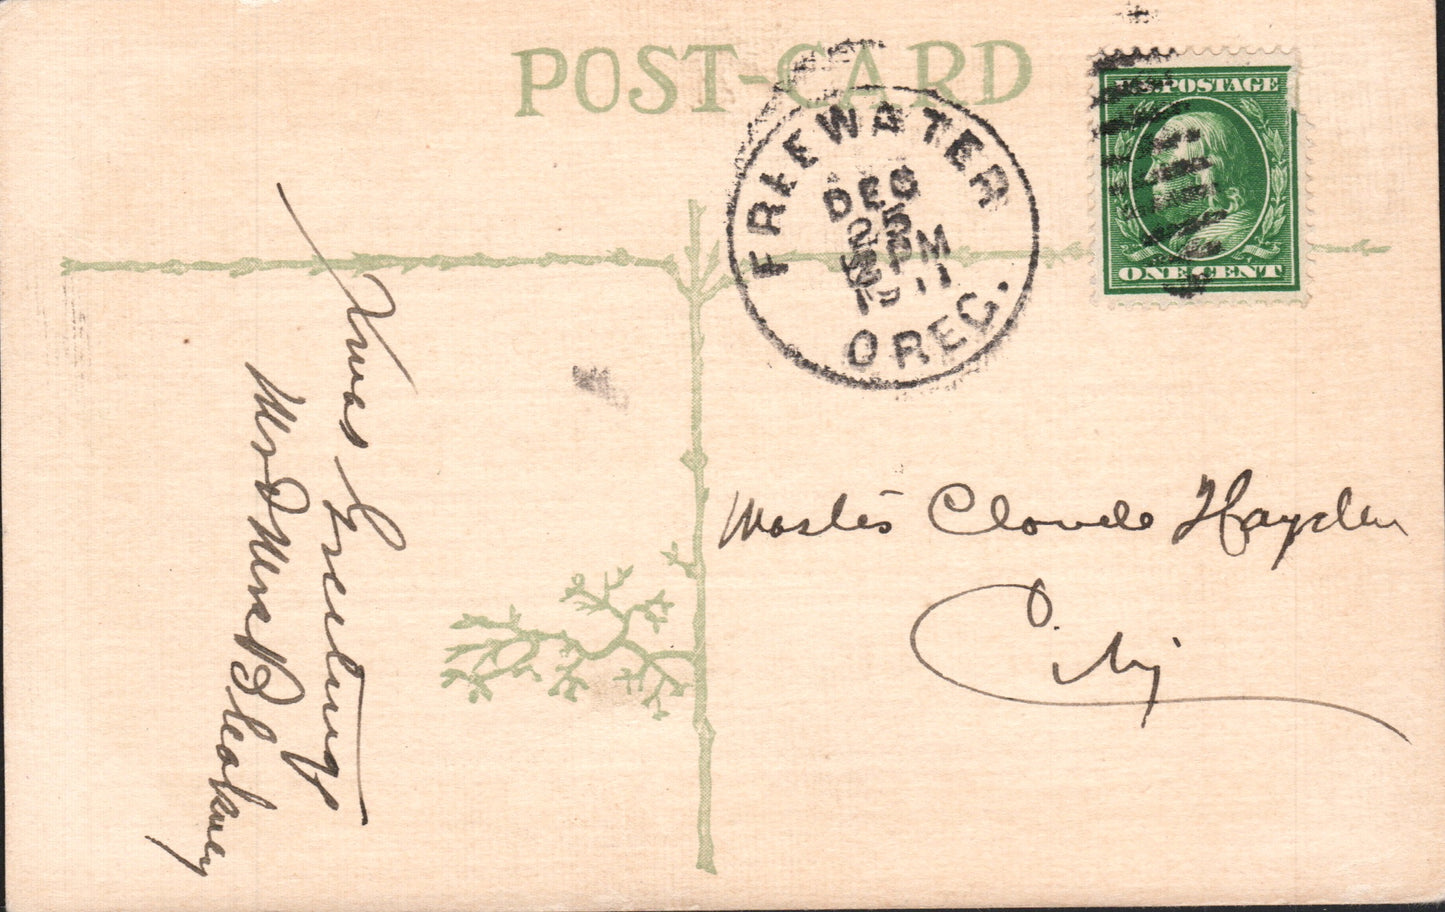 POST-CARD
U.S. POSTAGE
ONE CENT
FREEWATER
DEC
25
PM
1911
OREG.
Xmas Greetings
Mr & Mrs Bleakney
Master Claude Hayden
City